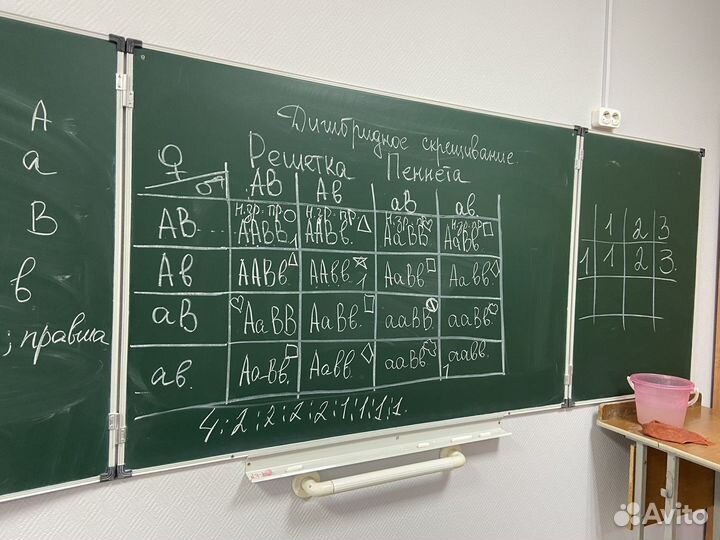 А
а
В
в
; правша
Дигибридное скрещивание.
Решетка Пеннета
♀ ♂ АВ Ав аВ ав.
АВ н.зр. пр н.зр. пр н.зр. пр н.зр. пр
ААВВ 1 ААВв. АаВВ АаВв.
Ав ААВв. ААвв. 1 АаВв Аавв.
аВ АаВВ АаВв. ааВВ ааВв.
ав. АаВв. Аавв. ааВв 1 аавв.
4:2:2:2:2:1:1:1:1.
1 2 3
1 1 2 3.
Avito